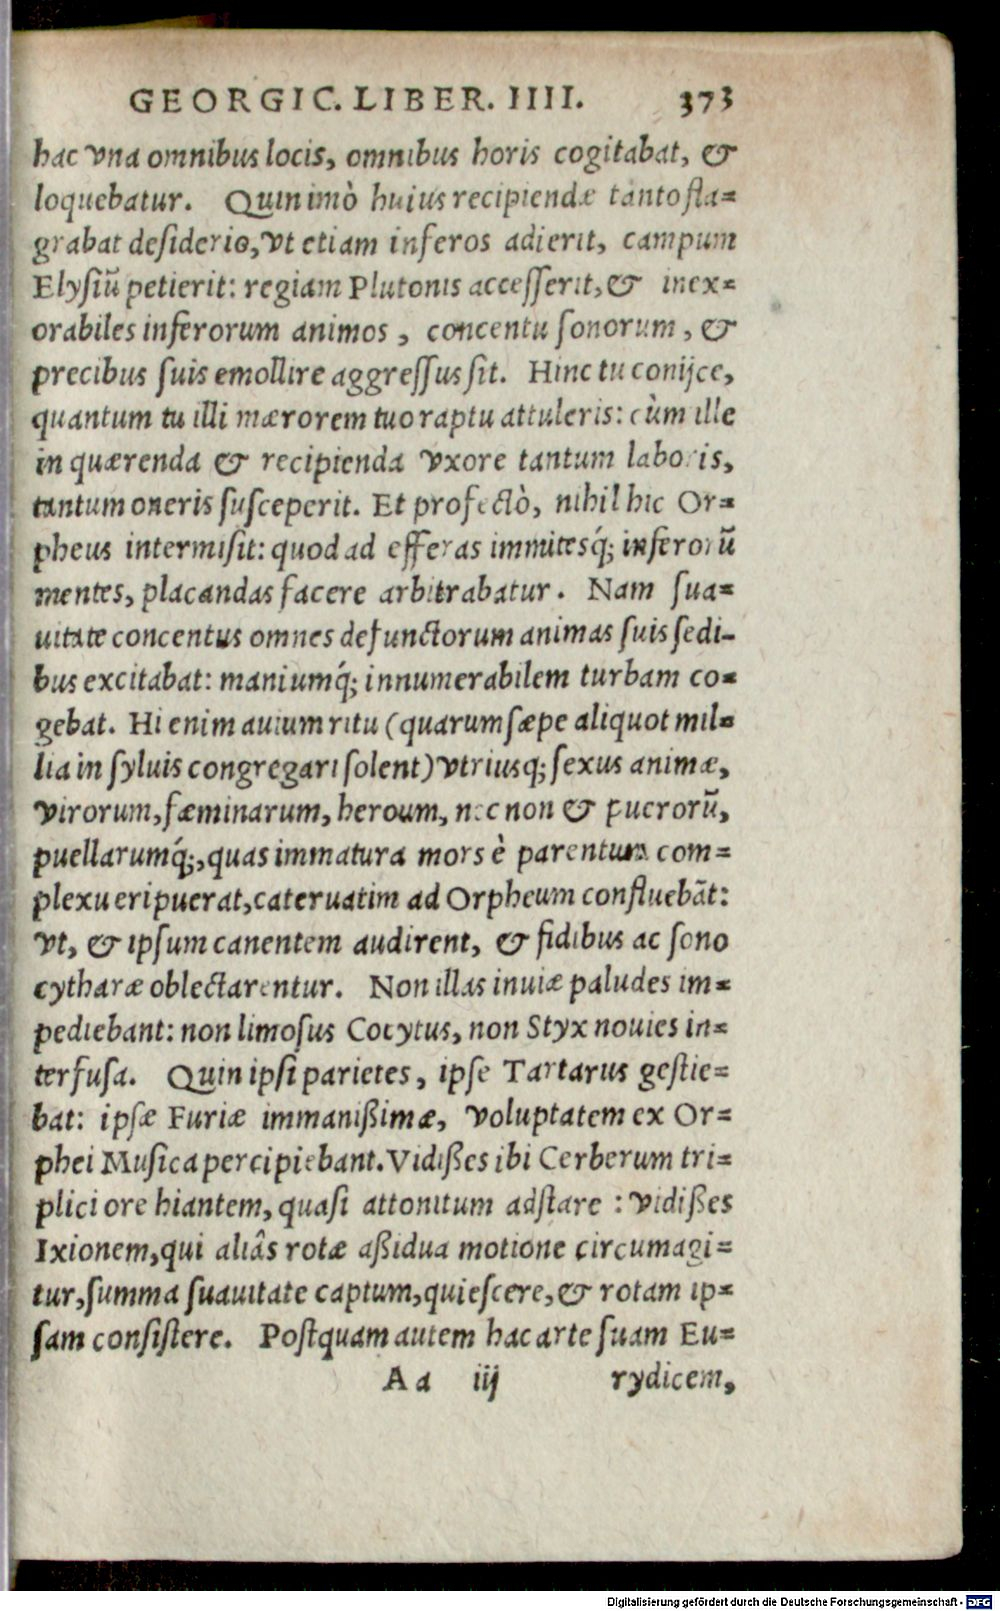 GEORGIC. LIBER. IIII. 373
hac vna omnibus locis, omnibus horis cogitabat, &
loquebatur. Quin imò huius recipiendæ tanto fla=
grabat desiderio, vt etiam inferos adierit, campum
Elysiũ petierit: regiam Plutonis accesserit, & inex=
orabiles inferorum animos, concentu sonorum, &
precibus suis emollire aggressus sit. Hinc tu conijce,
quantum tu illi mærorem tuo raptu attuleris: cùm ille
in quærenda & recipienda vxore tantum laboris,
tantum oneris susceperit. Et profectò, nihil hic Or=
pheus intermisit: quod ad efferas immitesq́; inferorũ
mentes, placandas facere arbitrabatur. Nam sua=
uitate concentus omnes defunctorum animas suis sedi-
bus excitabat: maniumq́; innumerabilem turbam co=
gebat. Hi enim auium ritu (quarum sæpe aliquot mil=
lia in syluis congregari solent) vtriusq; sexus animæ,
virorum, fæminarum, heroum, nec non & puerorũ,
puellarumq́;, quas immatura mors è parentum com=
plexu eripuerat, cateruatim ad Orpheum confluebãt:
vt, & ipsum canentem audirent, & fidibus ac sono
cytharæ oblectarentur. Non illas inuiæ paludes im=
pediebant: non limosus Cocytus, non Styx nouies in=
terfusa. Quin ipsi parietes, ipse Tartarus gestie=
bat: ipsæ Furiæ immanißimæ, voluptatem ex Or=
phei Musica percipiebant. Vidißes ibi Cerberum tri=
plici ore hiantem, quasi attonitum adstare : vidißes
Ixionem, qui aliâs rotæ aßidua motione circumagi=
tur, summa suauitate captum, quiescere, & rotam ip=
sam consistere. Postquam autem hac arte suam Eu=
Aa iij rydicem,
Digitalisierung gefördert durch die Deutsche Forschungsgemeinschaft - DFG